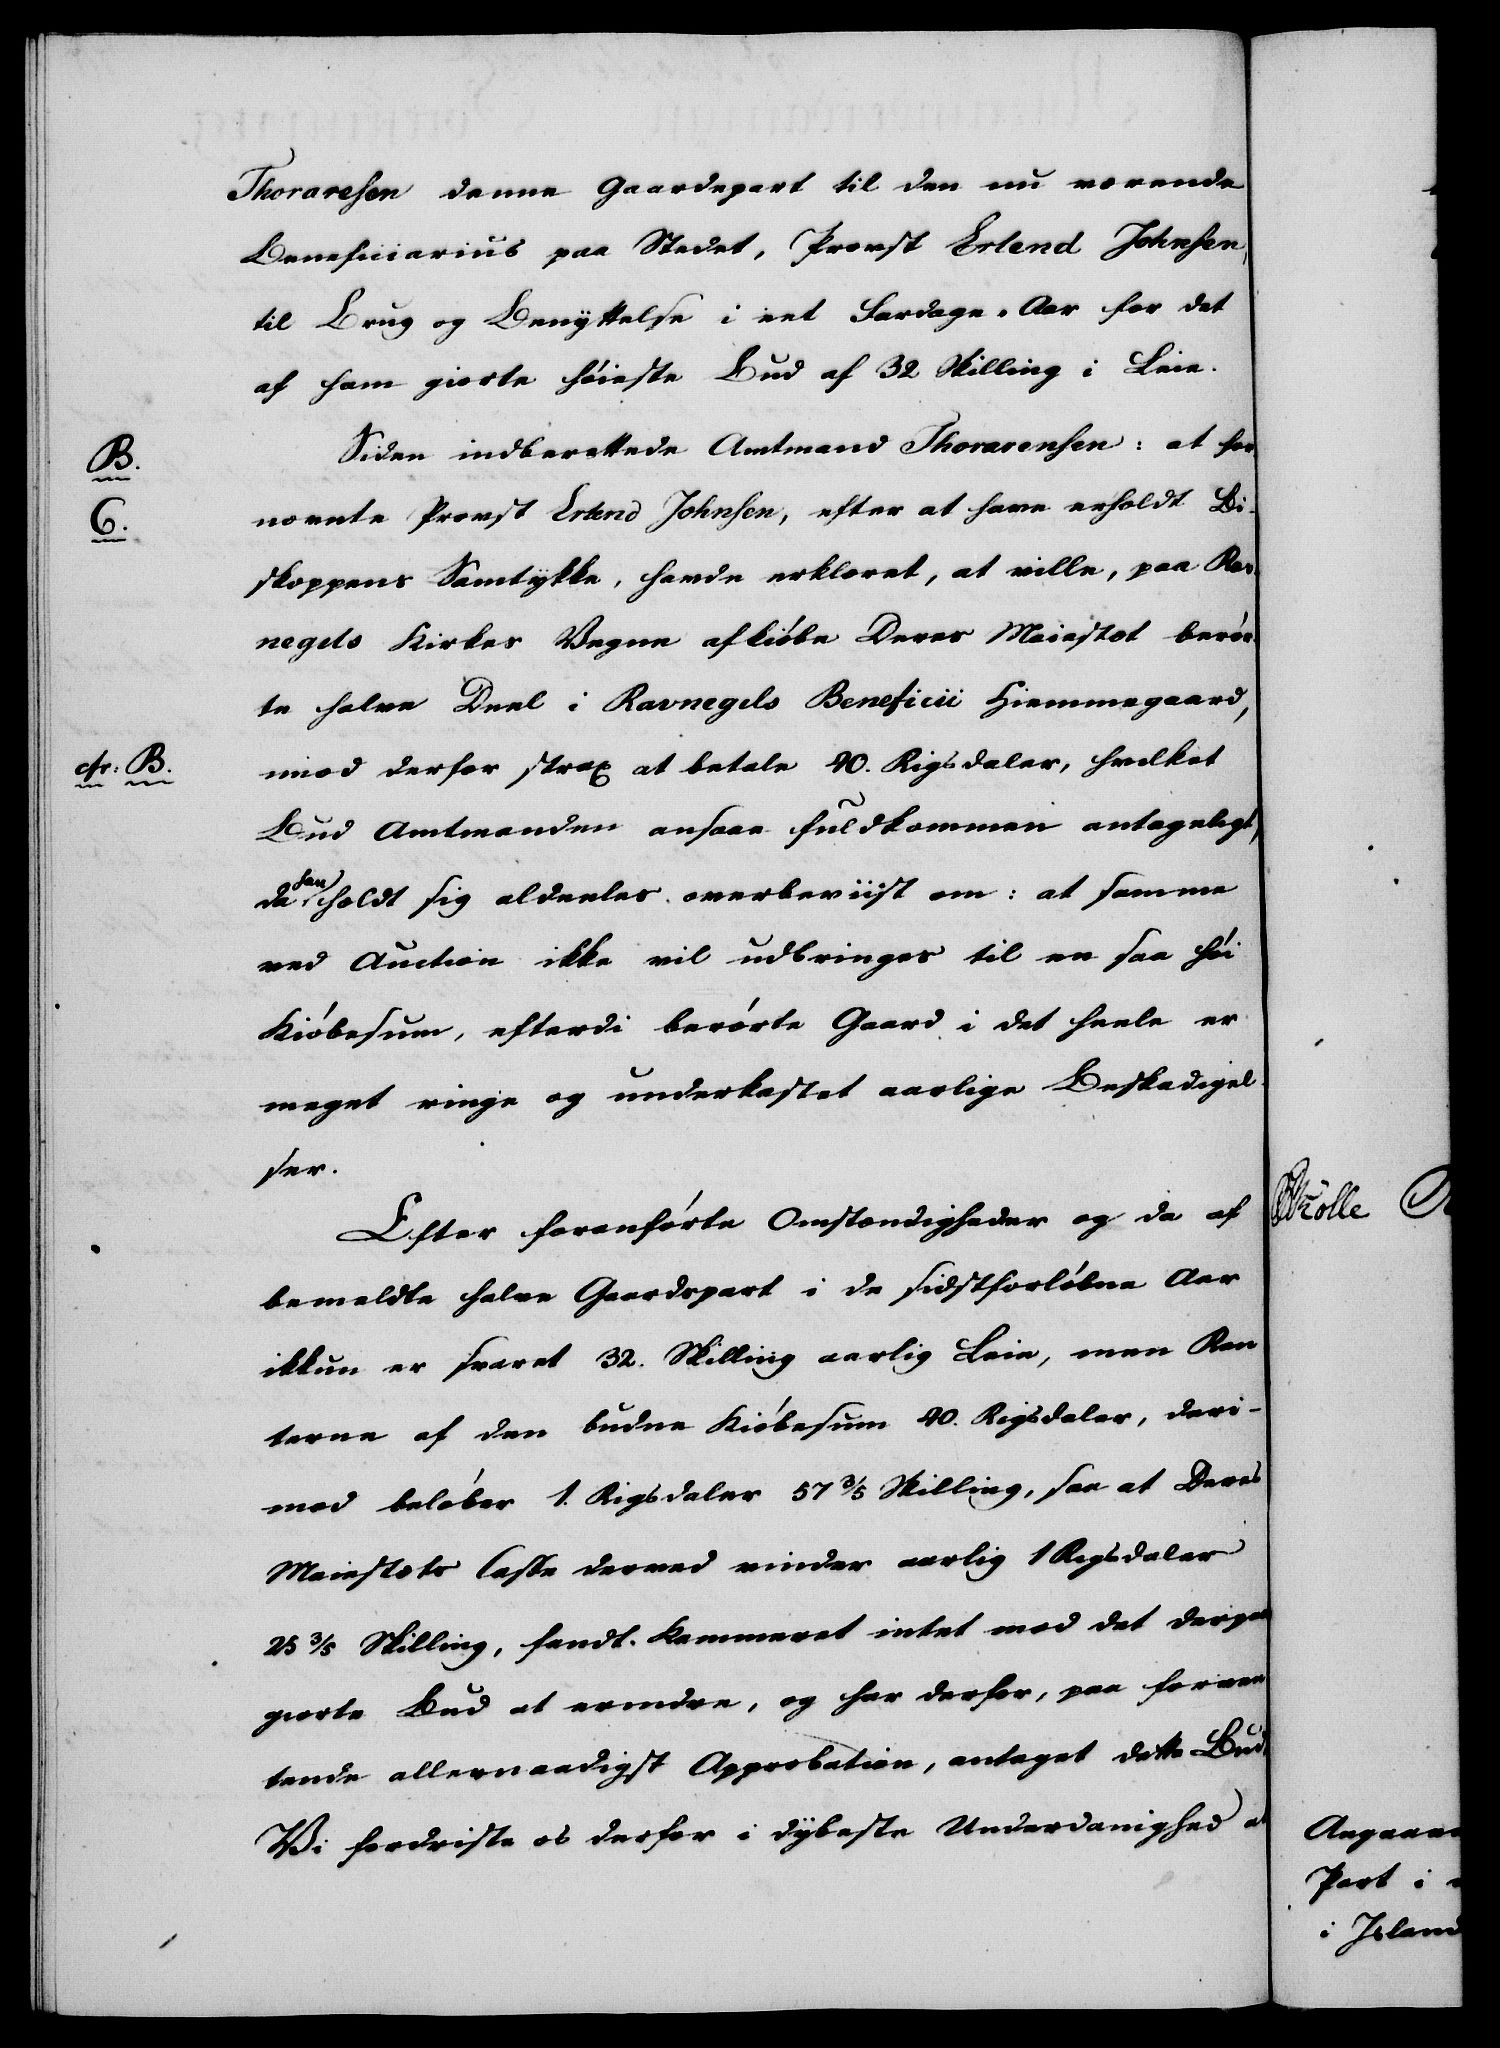 Thoraresen denne Gaardepart til den nu værende
Beneficiarius paa Stedet, Provst Erlend Johnsen,
til Brug og Benÿttelse i eet Fardage-Aar for det
af ham giorte höieste Bud af 32 Skilling i Leie.
B.
Siden indberettede Amtmand Thorarensen: at for
C.
nævnte Provst Erlend Johnsen, efter at have erholdt Bi-
skoppens Samtÿkke, havde erklæret, at ville, paa Rav-
negels Kirkes Vegne afkiöbe Deres Maiestæt berör-
te halve Deel i Ravnegels Beneficii Hiemmegaard,
cfr: B.
mod derfor strax at betale 40. Rigsdaler, hvilket
Bud Amtmanden ansaae fuldkommen antageligt,
da han holdt sig aldeeles overbeviist om: at samme
ved Auction ikke vil udbringes til en saa höi
Kiöbesum, efterdi berörte Gaard i det heele er
meget ringe og underkastet aarlige Beskadigel-
ser.
Efter foranförte Omstændigheder og da af
bemeldte halve Gaardspart i de sidstforlöbne Aar
ikkun er svaret 32. Skilling aarlig Leie, men Ren
terne af den budne Kiöbesum 40. Rigsdaler, deri-
mod belöber 1. Rigsdaler 57 3/5 Skilling, saa at Deres
Maiestæts Casse derved vinder aarlig 1 Rigsdaler
25 3/5 Skilling, fandt Kammeret intet mod det derpaa
giorte Bud at erindre, og har derfor, paa forven
tende allernaadigst Approbation, antaget dette Bud.
Vi fordriste os derfor i dÿbeste Underdanighed at
Part i
i Island